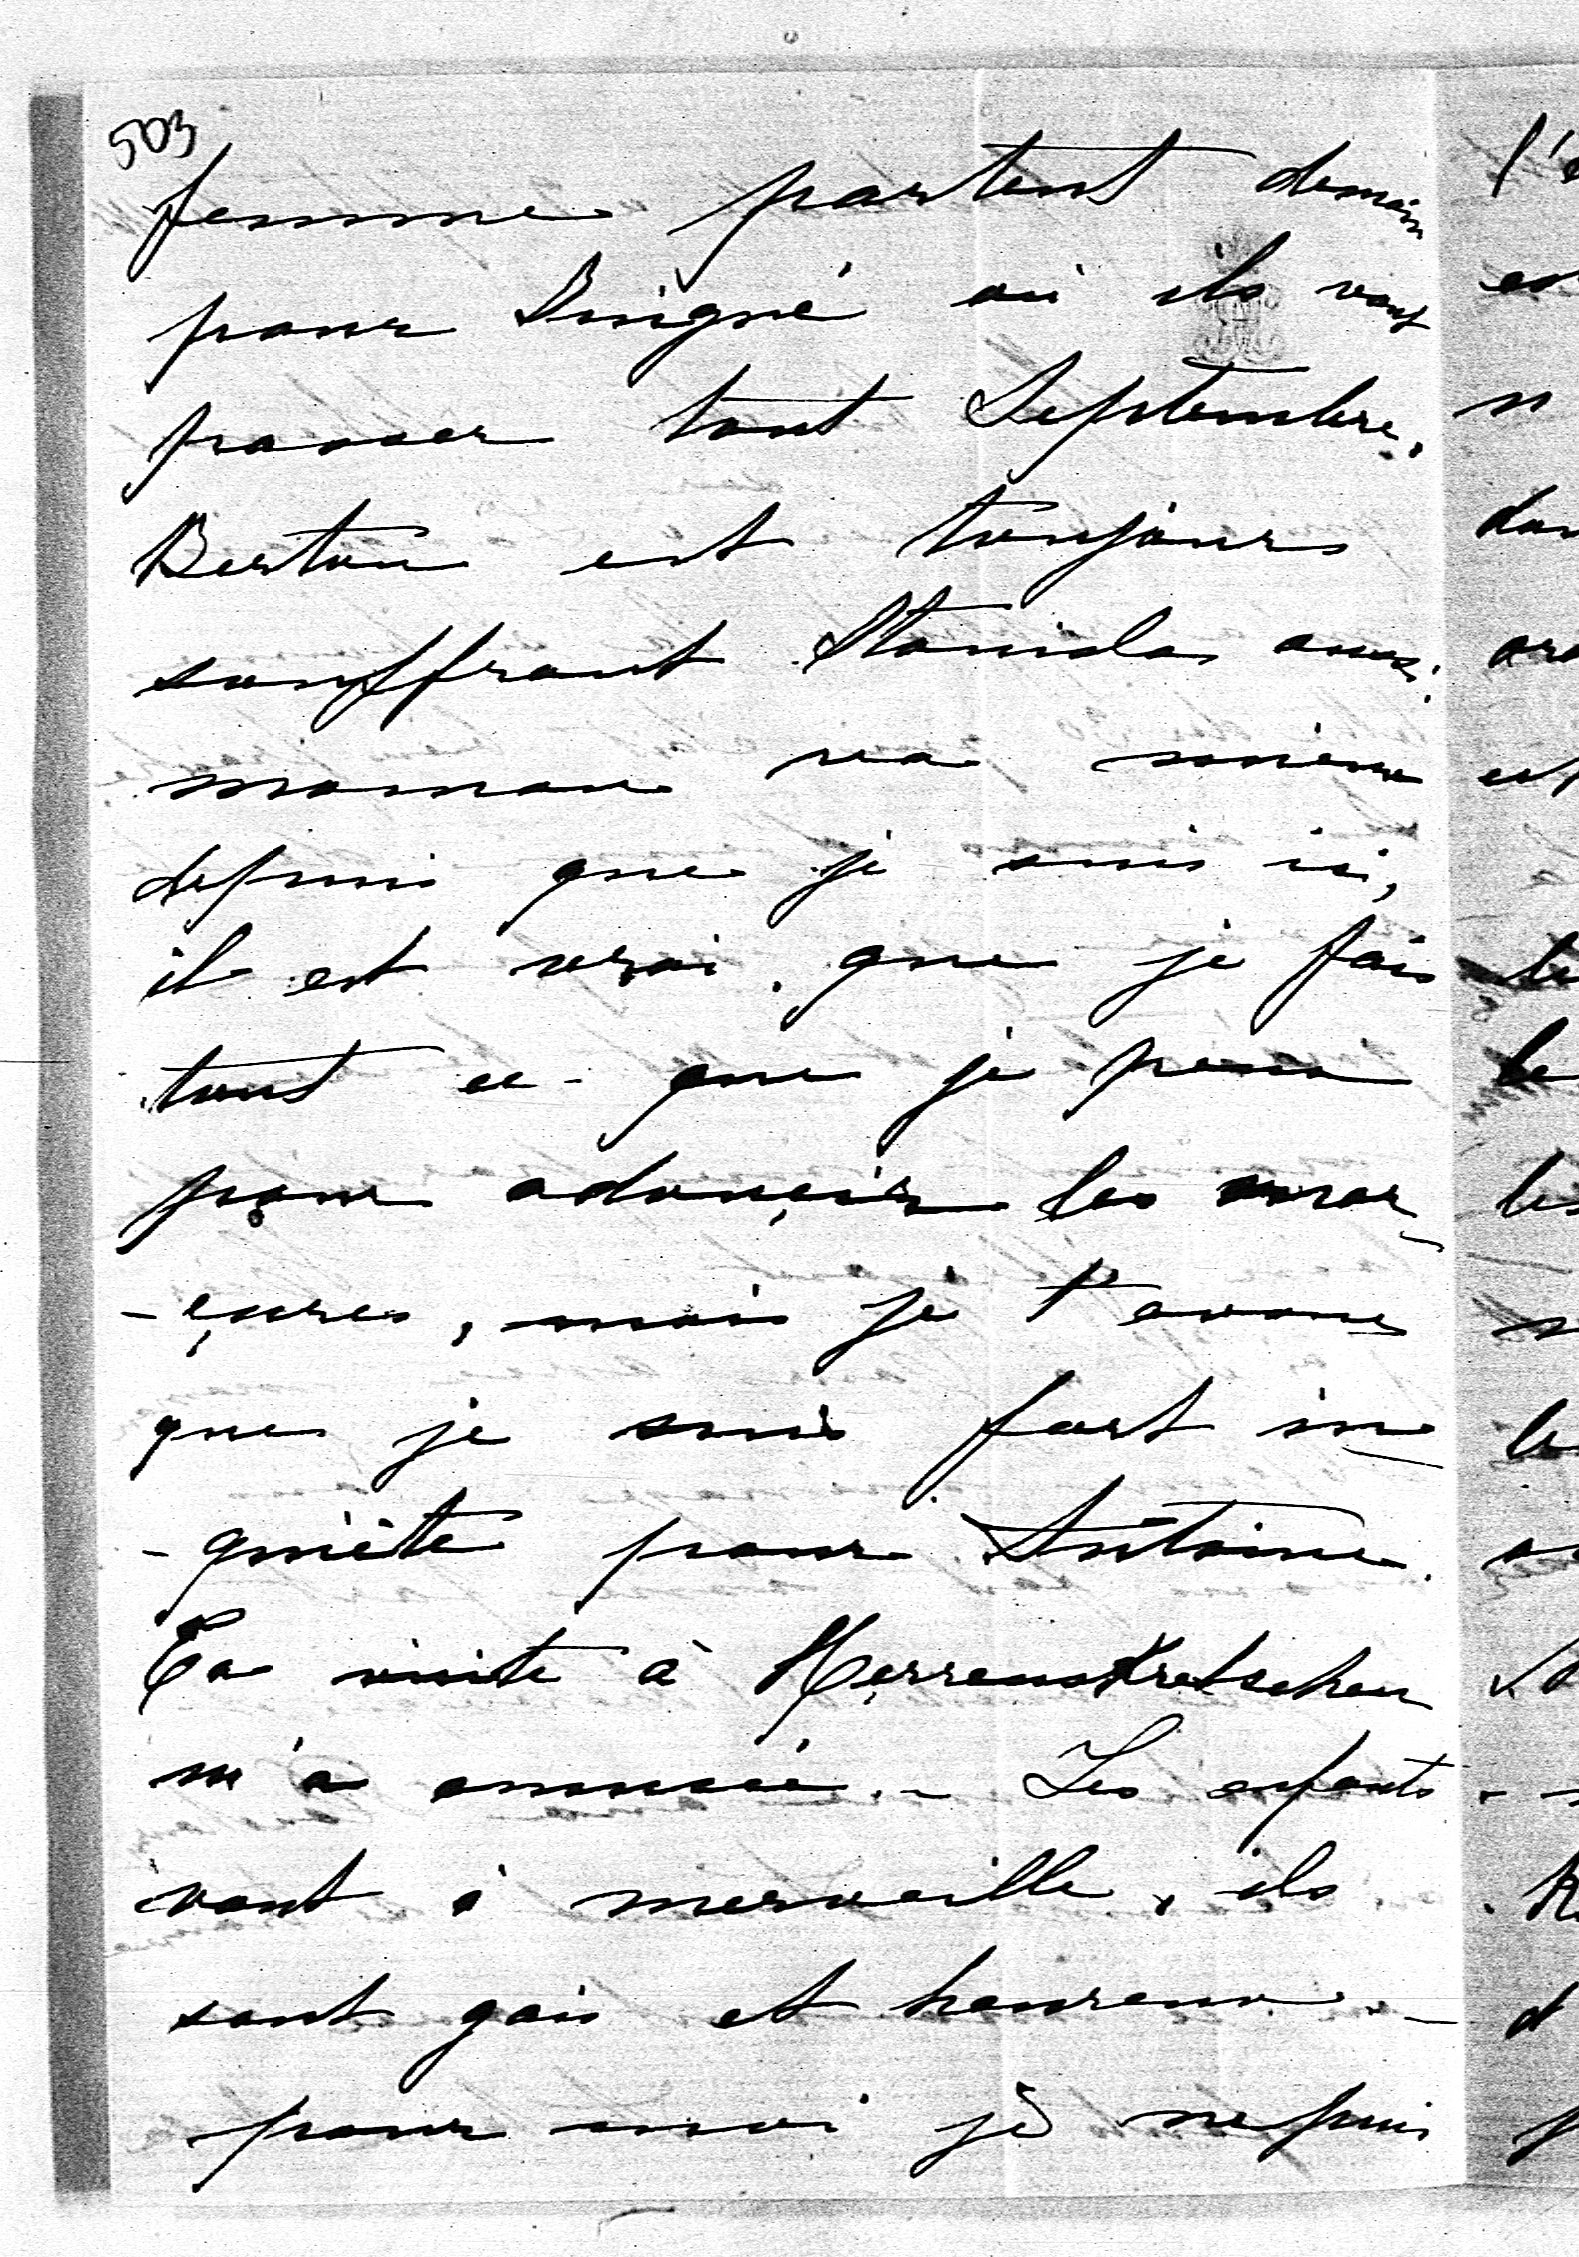 503
femme partent demain
pour Boigné où ils vont
passer tout Septembre.
Berton est toujours
souffrant Stanislas aussi.
maman va mieux
depuis que je suis ici,
il est vrai que je fais
tout ce que je peux
pour adouçir les mor
-çures, mais je t'avoue
que je suis fort in
-quiète pour Antoine.
Ta visite à Herrenskretschen
m'a amusée. - Les enfants
vont à merveille, ils
sont gais et heureux. -
pour moi je ne puis